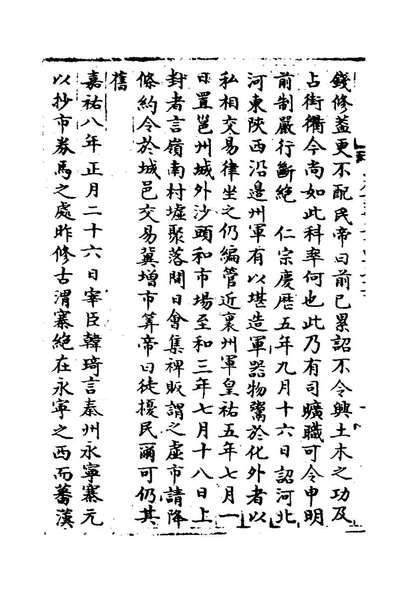 錢修蓋更不配民帝曰前已累詔不令興土木之功及
占街衢今尚如此科率何也此乃有司曠職可令申明
前制嚴行斷絶　仁宗慶歷五年九月十六日詔河北
河東陜西沿邊州軍有以堪造軍器物鬻於化外者以
私相交易律坐之仍編管近裏州軍皇祐五年七月一
日置邕州城外沙頭和市場至和三年七月十八日上
封者言嶺南村墟聚落間日會集裨販謂之虚市請降
條約令於城邑交易冀增市筭帝曰徒擾民爾可仍其
舊
嘉祐八年正月二十六日宰臣韓琦言秦州永寧寨元
以抄市券馬之處昨修古渭寨絶在永寧之西而蕃漢